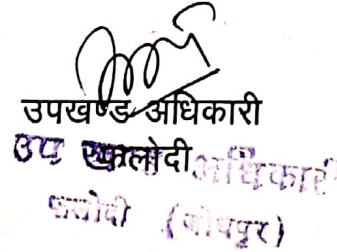 उपखण्ड अधिकारी
फलोदी
उप खण्ड अधिकारी
फलोदी (जोधपुर)